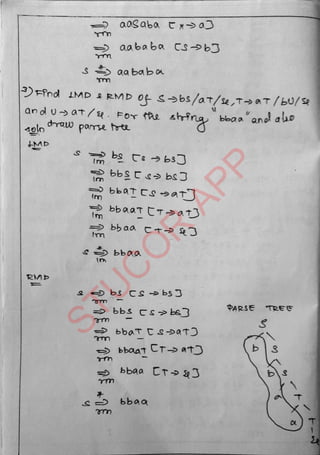 ⇒ aasaba [x→a]
rm
⇒ aababa [s→b]
rm
s *⇒ aababa
rm
3) Find LMD & RMD of S→bs/aT/ε, T→aT/bU/ε
and U→aT/ε. For the string "bbaa" and also
soln draw parse tree
LMD
s ⇒ bs [s→bs]
lm
⇒ bbs [s→bs]
lm
⇒ bbaT [s→aT]
lm
⇒ bbaaT [T→aT]
lm
⇒ bbaa [T→ε]
lm
s *⇒ bbaa
lm
RMD
s ⇒ bs [s→bs]
rm
⇒ bbs [s→bs]
rm
⇒ bbaT [s→aT]
rm
⇒ bbaaT [T→aT]
rm
⇒ bbaa [T→ε]
rm
s *⇒ bbaa
rm
PARSE TREE
S
b S
b S
a T
a T
ε
STUCOR APP